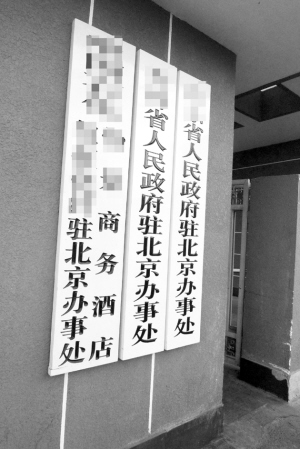 商务酒店
驻北京办事处
省人民政府驻北京办事处
省人民政府驻北京办事处